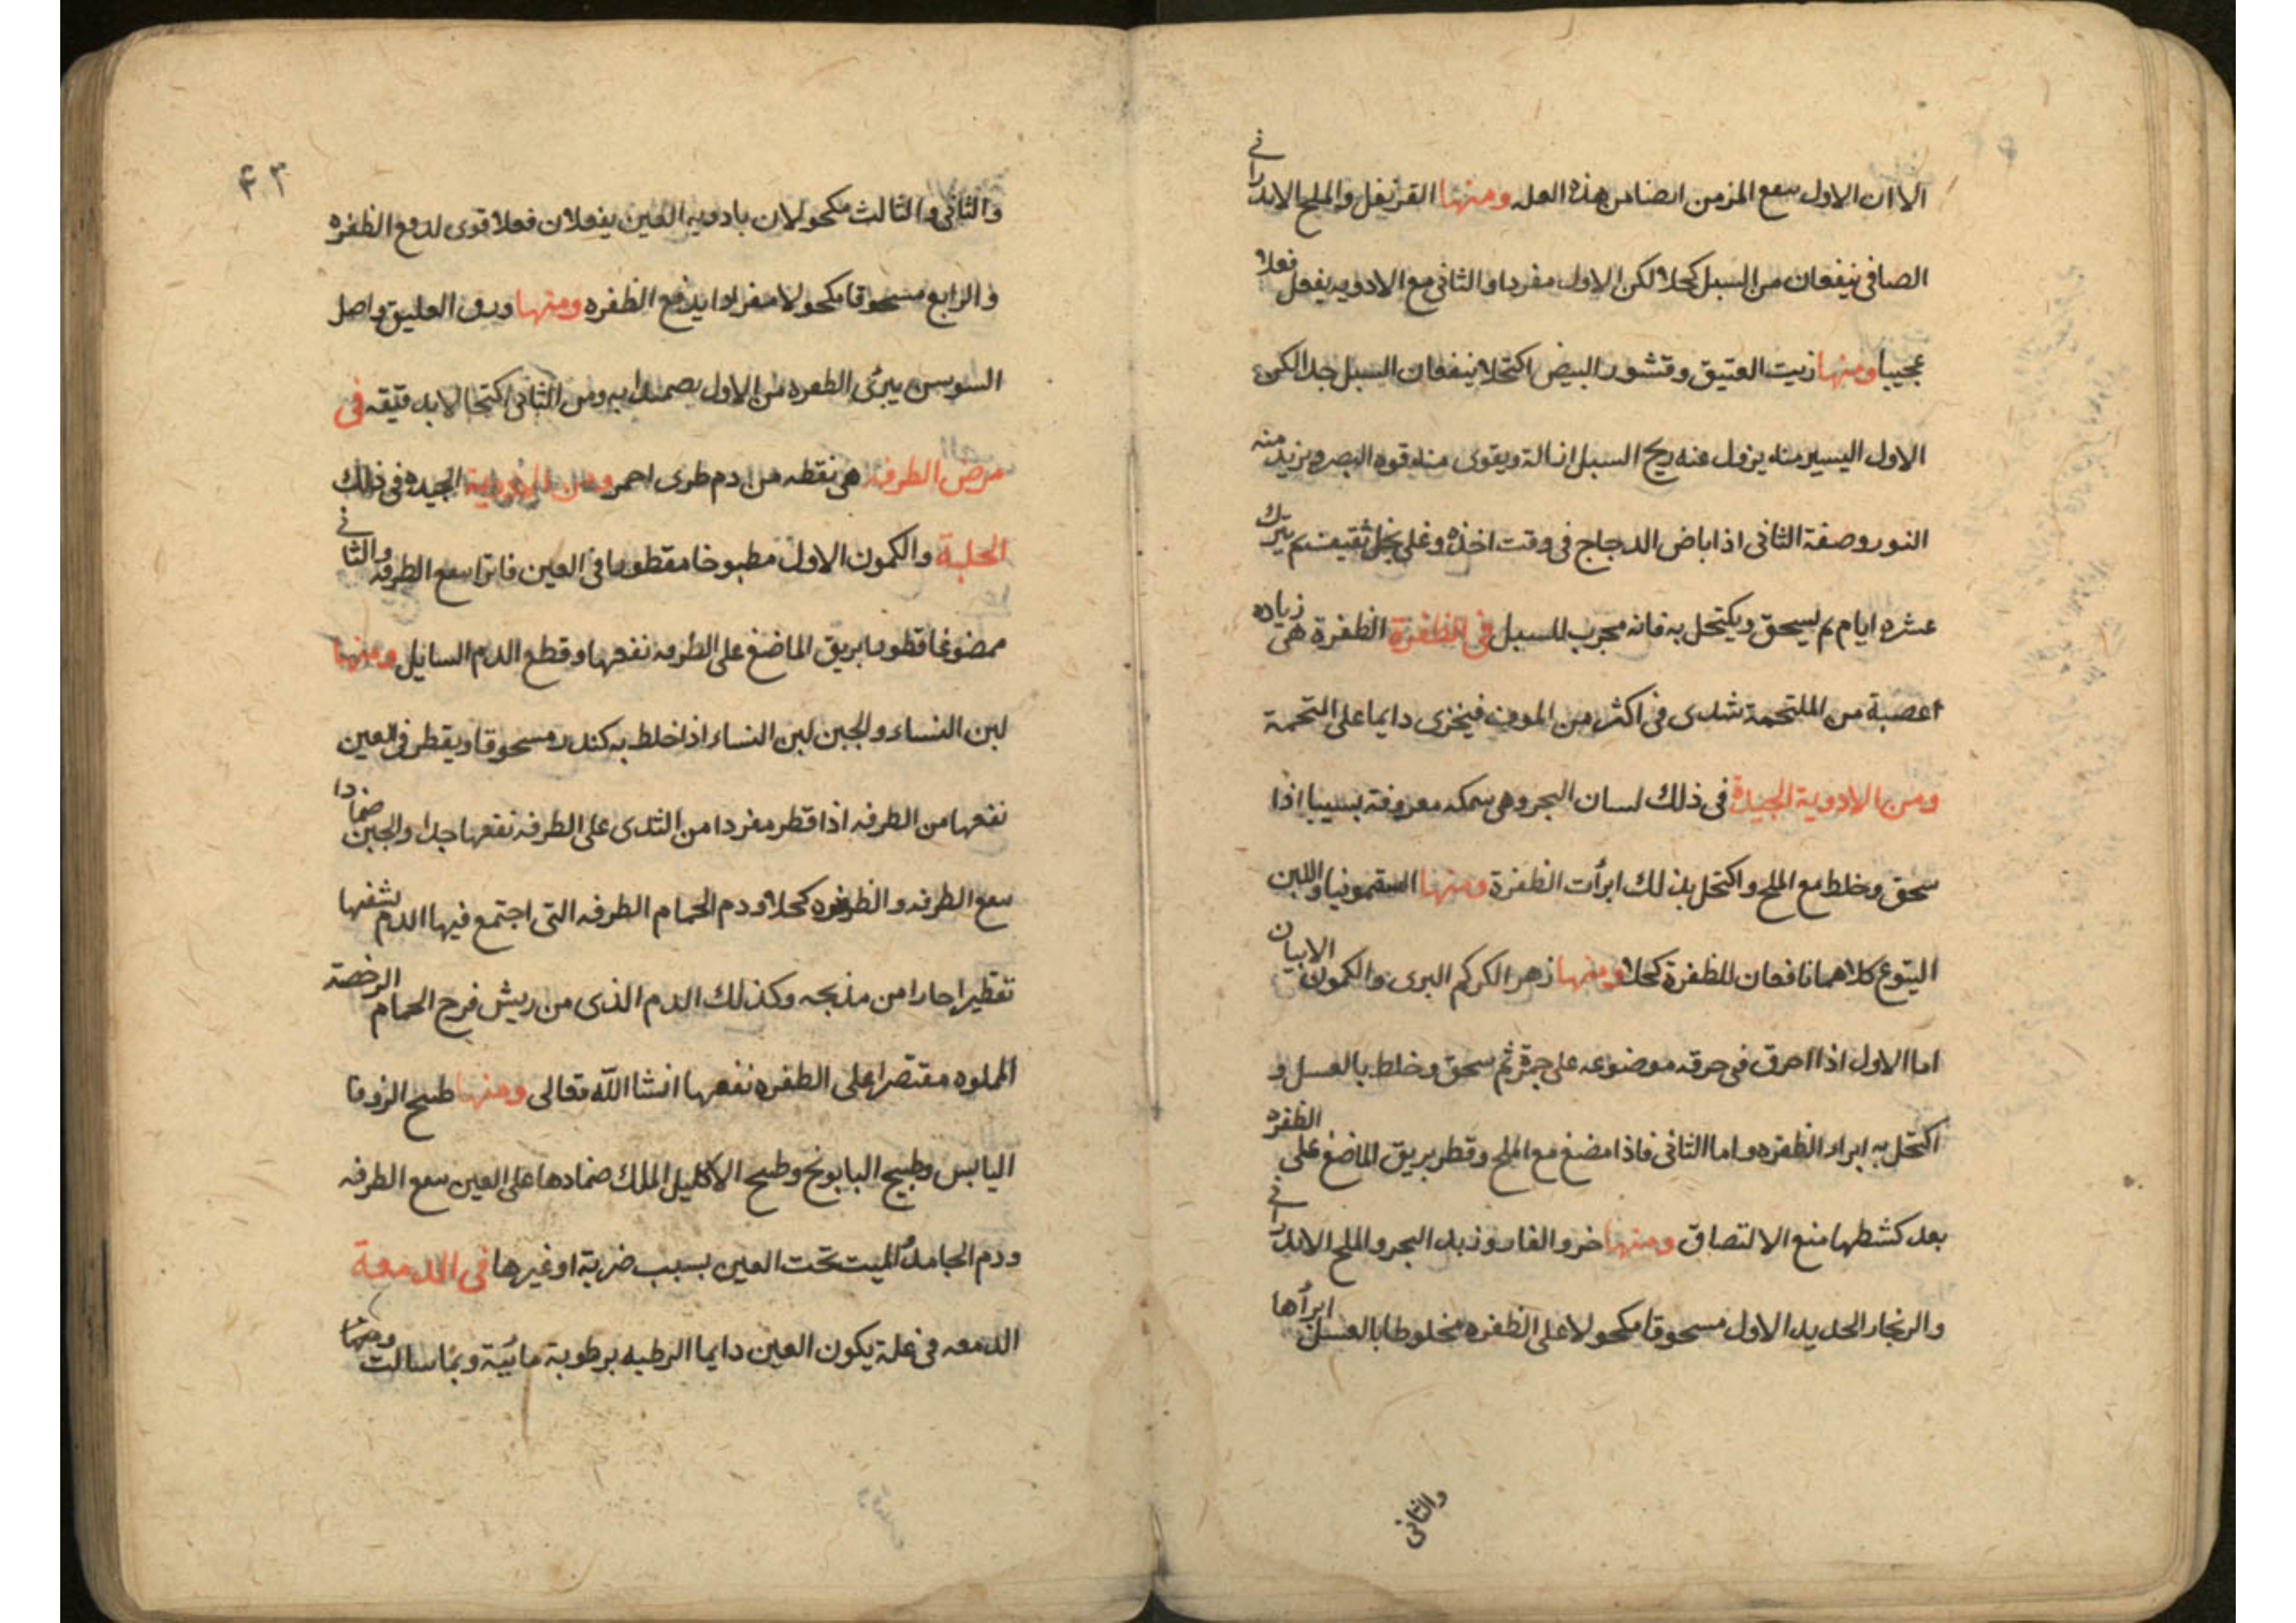 الا ان الاول ينفع المزمن ايضا من هذه العله ومنها القرنفل والملح الاندرانى
الصافى ينفعان من السبل كحلا لكن الاول مفردا والثانى مع الادويه يفعل فعلا
عجيبا ومنها زيت العتيق وقشور البيض اكتحلا ينفعان السبل جدا لكن
الاول اليسير منه يزول عنه ريح السبل ازالة ويقوى منه قوه البصر ويزيد منه
النور وصفة الثانى اذا باض الدجاج فى وقت اخذه وغلى بخل ثقيف ثم يترك
عشره ايام ثم يسحق ويكتحل به فانه مجرب للسبل فى الظفرة الظفرة هى زياده
اعصبة من الملتحمة تبتدى فى اكثر من الموق فيخزى دايما على المتحمة
ومن الادوية الجيدة فى ذلك لسان البحر وهى سمكه معروفة بسيبا اذا
سحق وخلط مع الملح واكتحل بذلك ابرأت الظفرة ومنها السقمونيا واللبن
اليتوع كلاهما نافعان للظفرة كحلا ومنها زهر الكركم البرى والكمون الابيان
اما الاول اذا احرق فى خرقه موضوعه على جمرة ثم سحق وخلط بالعسل و
اكتحل به ابراء الظفره واما الثانى فاذا مضغ مع الملح وقطر بريق الماضغ على الظفره
بعد كشطها منع الالتصاق ومنها خرو الفار وزبد البحر والملح الاندرانى
والزنجار الحديد الاول مسحوقا مكحولا على الظفره مخلوطا بالعسل ابرأها
والثانى
۴۳
والثانى والثالث مكحولان بادويه العين يفعلان فعلا قوى لدفع الظفره
والرابع مسحوقا مكحولا مفرادا يدفع الظفره ومنها ورق العليق واصل
السوسن يبرى الظفره من الاول بصمدا به ومن الثانى اكتحالا بدقيقه فى
مرض الطرفه هى نقطه من دم طرى احمر ومن الادوية الجيده فى ذلك
الحلبة والكمون الاول مطبوخا مقطورا فى العين فاترا ينفع الطرفه والثانى
ممضوغا قطورا بريق الماضغ على الطرفه نفعها وقطع الدم السايل ومنها
لبن النساء والجبن لبن النساء اذا خلط به كندر مسحوقا ويقطر فى العين
نفعها من الطرفه اذا قطر مفردا من الثدى على الطرفه نفعها جدا والجبن ضمادا
ينفع الطرفه والظفره كحلا ودم الحمام الطرفه التى اجتمع فيها الدم يشفها
تقطيرا حارا من مذبحه وكذلك الدم الذى من ريش فرخ الحمام الرخصة
المملوه مقتصرا على الظفره نفعها انشا الله تعالى ومنها طبيخ الزوفا
اليابس وطبيخ البابونج وطبيخ الاكليل الملك ضمادها على العين ينفع الطرفه
ودم الجامد الميت تحت العين بسبب ضربة او غيرها فى الدمعة
الدمعه فى علة يكون العين دايما الرطبه برطوبة مائية وبما سالت ومنها